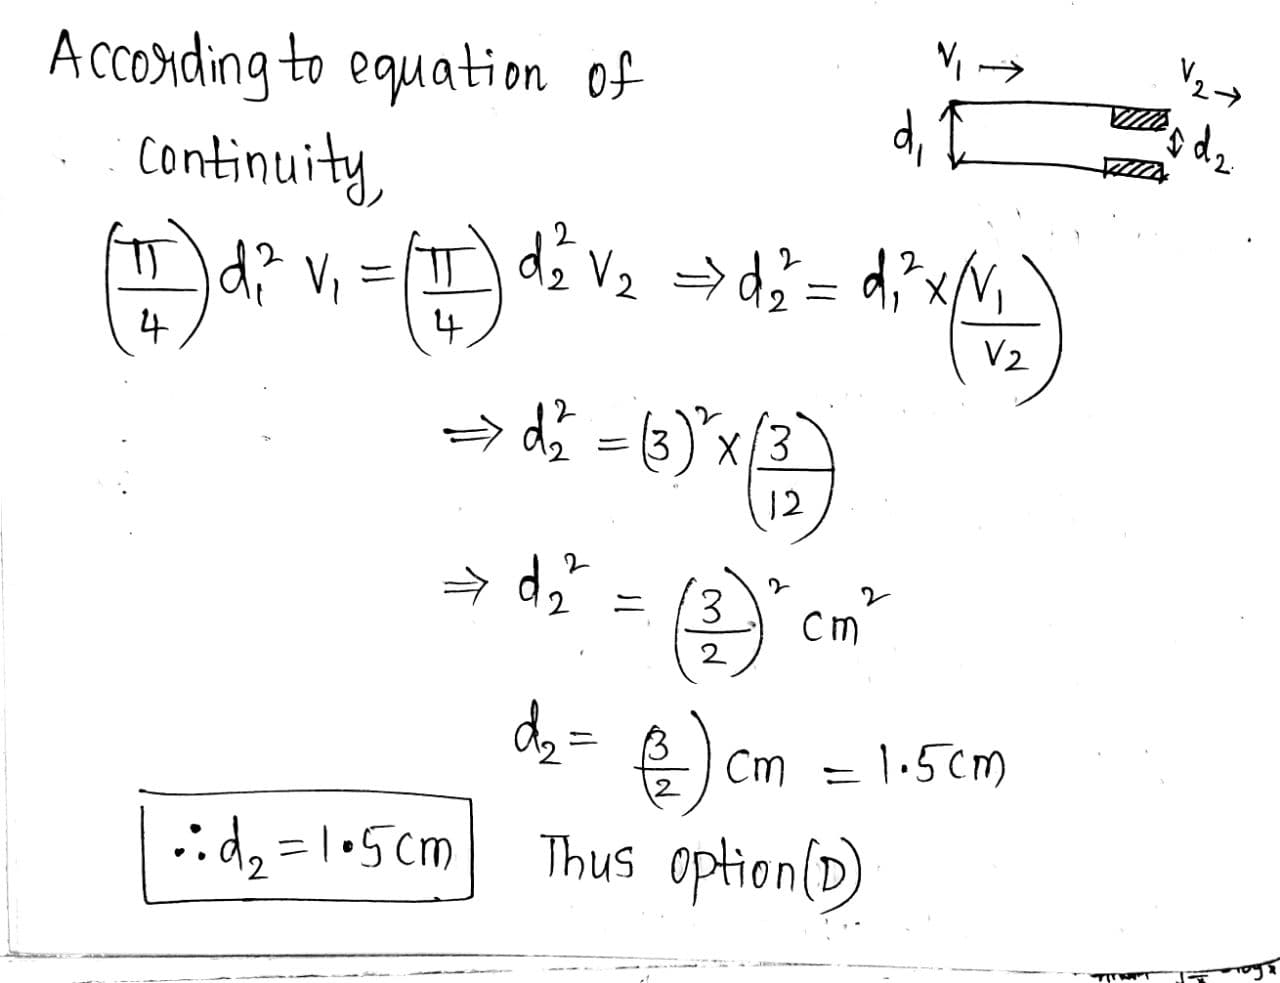 According to equation of
V₁ →
V₂ →
d₁
d₂
continuity,
(π/4) d₁² V₁ = (π/4) d₂² V₂ ⇒ d₂² = d₁² x (V₁/V₂)
⇒ d₂² = (3)² x (3/12)
⇒ d₂² = (3/2)² cm²
d₂ = (3/2) cm = 1.5cm
∴ d₂ = 1.5cm
Thus option(D)